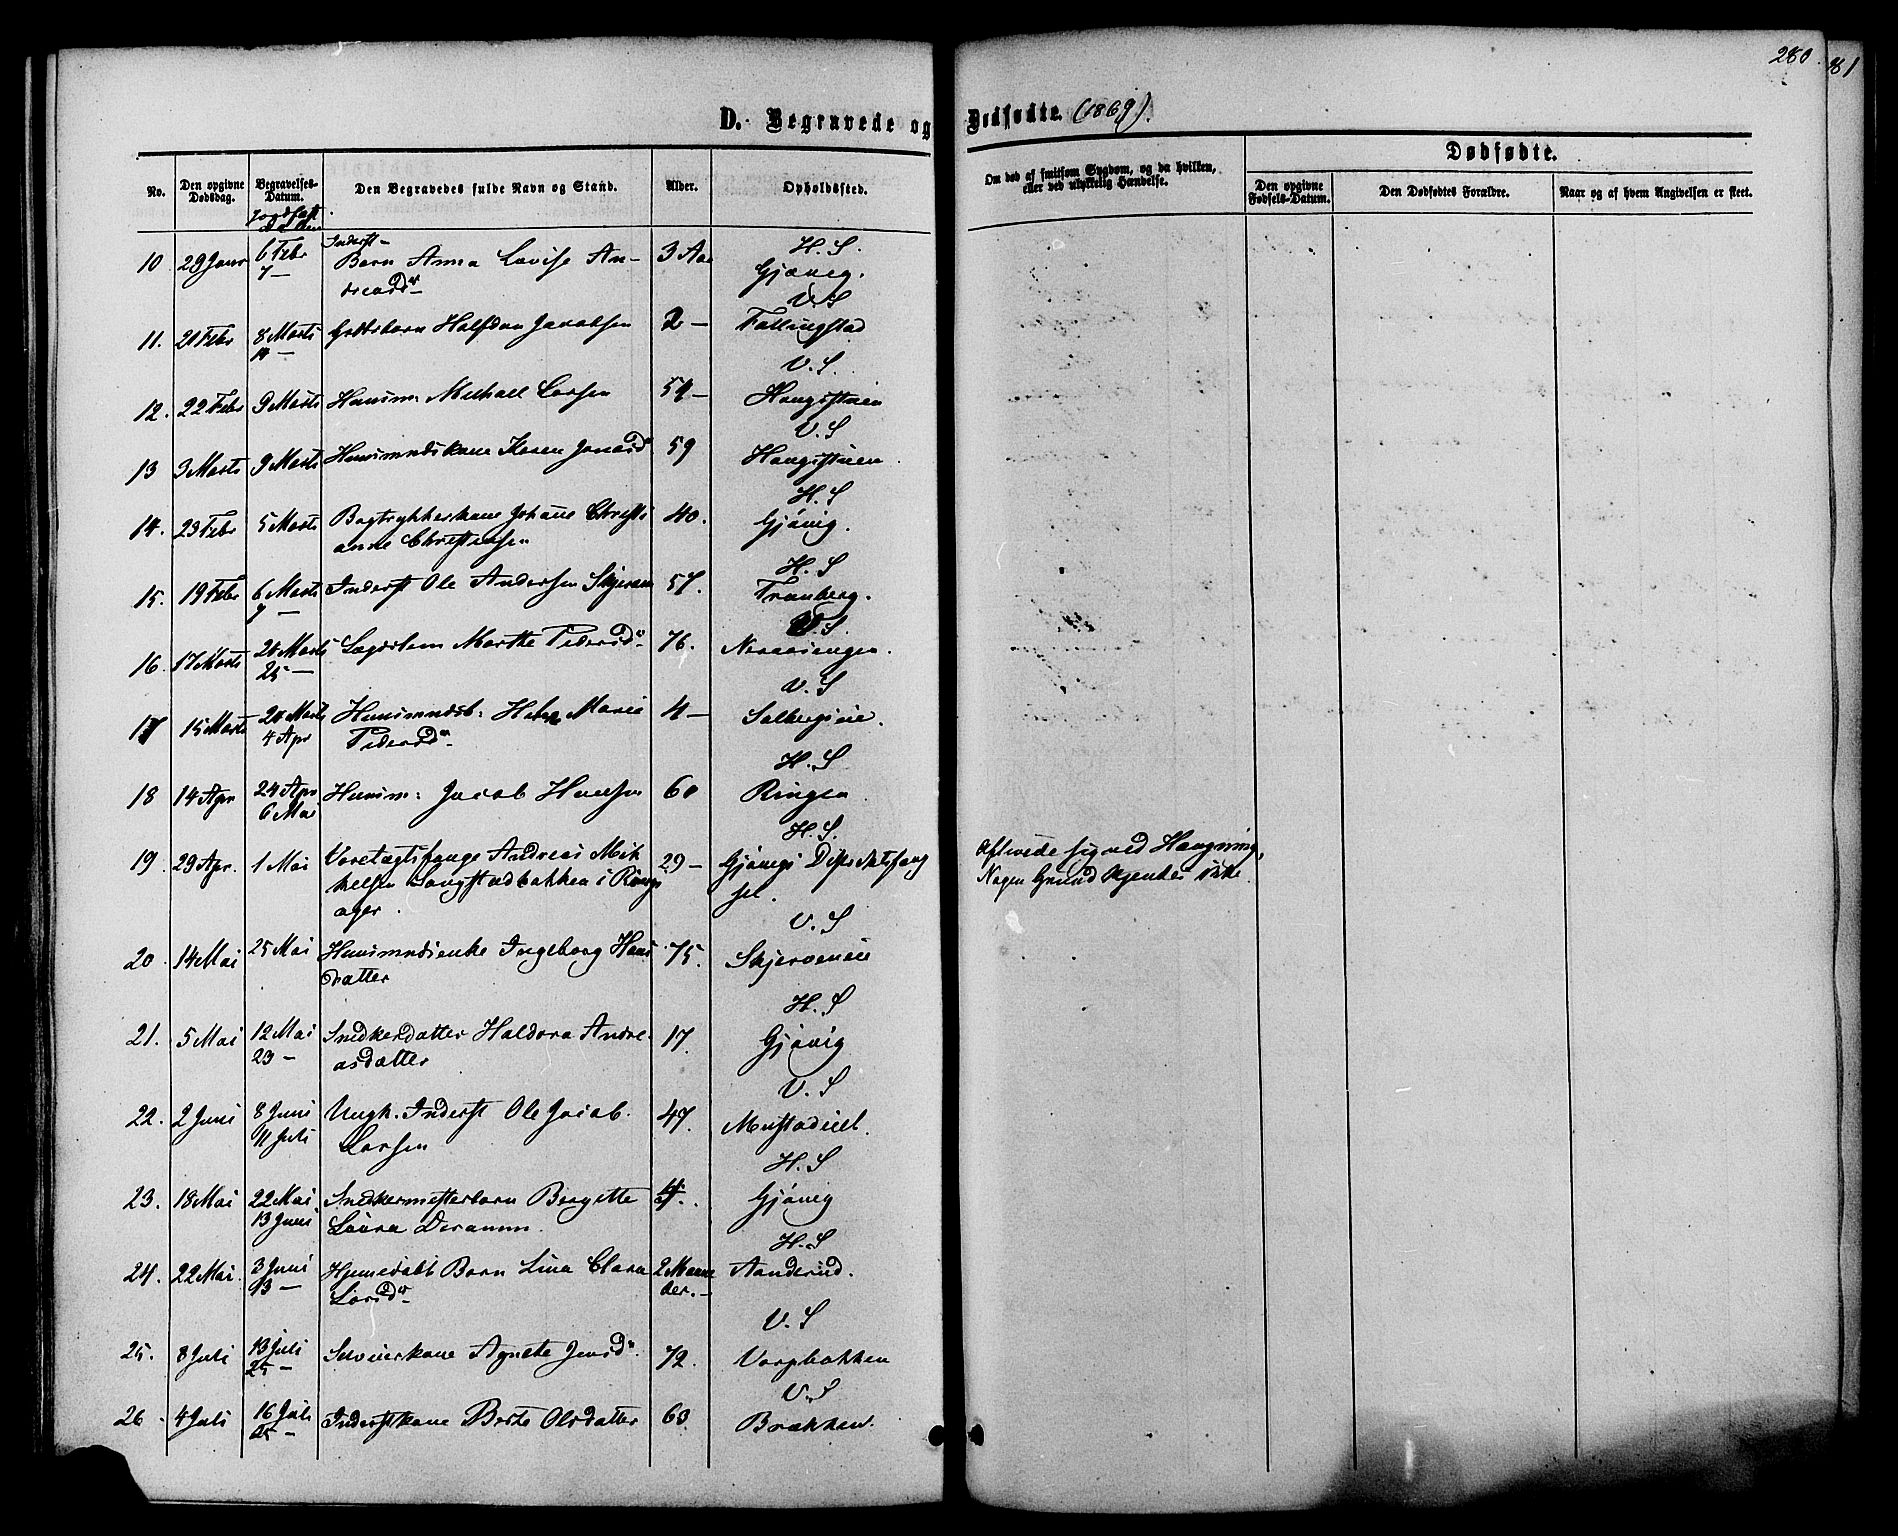 280
81
D. Begravede og Dødfødte. (1869).
No.
Den opgivne Dødsdag.
Begravelses-Datum.
Jordfæst
Den Begravedes fulde Navn og Stand.
Alder.
Opholdssted.
Om død af smitsom Sygdom, og da hvilken, eller ved ulykkelig Hændelse.
Dødfødte.
Den opgivne Fødsels-Datum.
Den Dødfødtes Forældre.
Naar og af hvem Angivelsen er skeet.
10 29 Janr 6 Febr 7 — Inderst- Barn Anna Lovise An-
dreasd. 3 Aar H. S Gjøvig.
11. 21 Febr 8 Marts 14 — Halfdan Jacobsen 2 — V. S
12. 22 Febr 9 Marts Huusm: Michael Larsen 54 — V. S. Haugstuen
13 3 Marts 9 Marts Huusmndskone Karen Jonasd 59 V. S Haugstuen
14. 23 Febr 5 Marts Bogtrykkerkone Johane Christi
anne Christensen 40. H. S Gjøvig.
15. 19 Febr 6 Marts 7 — Inderst Ole Andersen Skjerven 57. H. S Tranberg.
16. 17 Marts 20 Marts 25 — Lægdslem Marthe Pedersd. 76. V. S.
17 15 Marts 20 Marts 4 Apr Huusmndsb: Marie
Pedersd. 4 — V. S
18 14 Apr 24 Apr 6 Mai Huusm: Jacob Hansen 60 H. S Ringen
19. 29 Apr. 1 Mai Varetægtsfange Andreas Mik
kelsen Haugstadbakken i Rings
ager. 29 — H. S. Gjøvigs Distriktsfæng
sel. Aflivede sig ved Hængning,
Nogen Grund kjendes ikke.
20 14 Mai 25 Mai Huusmndsenke Ingeborg Hans
datter 75. V. S Skjerveneie
21. 5 Mai 12 Mai 23 — Snedkerdatter Haldora Andre-
asdatter 17. H. S Gjøvig
22. 2 Juni 8 Juni 11 Juli Ungk. Inderst Ole Jacob
Larsen 47. V. S
23. 18 Mai 22 Mai 13 Juni Snedkermesterbarn Bergitte
Laura H. S Gjøvig
24. 22 Mai. 3 Juni 13 — Barn Lina Clara
Larsd. 2 Maane
der. — H. S Aanderud.
25. 8 Juli 13 Juli 25 — Agnete Jensd. 72. V. S Vorpbakken
26. 4 Juli 16 Juli 25 — Inderstkone Berte Olsdatter 63 V. S Brækken.